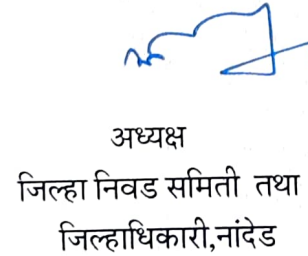 अध्यक्ष
जिल्हा निवड समिती तथा
जिल्हाधिकारी,नांदेड